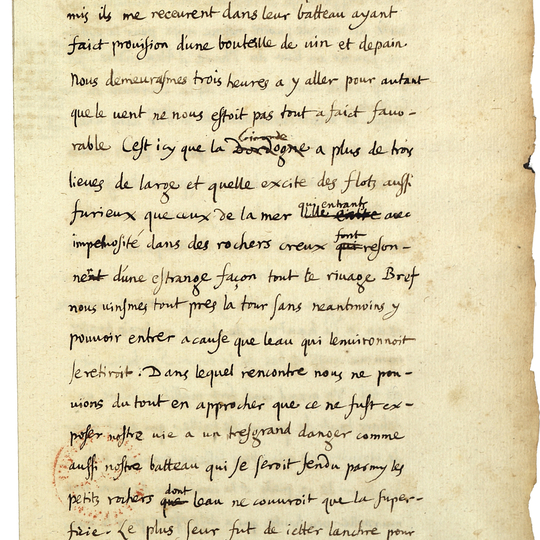 mis ils me receurent dans leur batteau ayant
faict provision d'une bouteille de vin et de pain.
Nous demeurasmes trois heures a y aller pour autant
que le vent ne nous estoit pas tout a faict favo-
rable C'est icy que la Dordogne a plus de trois
lieues de large et qu'elle excite des flots aussi
furieux que ceux de la mer qui entrants avec
impetuosité dans des rochers creux font reson-
ner d'une estrange façon tout le rivage Bref
nous vinsmes tout pres la tour sans neantmoins y
pouvoir entrer a cause que l'eau qui l'environnoit
se retiroit : Dans lequel rencontre nous ne pou-
vions du tout en approcher que ce ne fust ex-
poser nostre vie a un tresgrand danger comme
aussi nostre batteau qui se seroit fendu parmy les
petits rochers dont l'eau ne couvroit que la super-
ficie. Le plus seur fut de ietter l'anchre pour